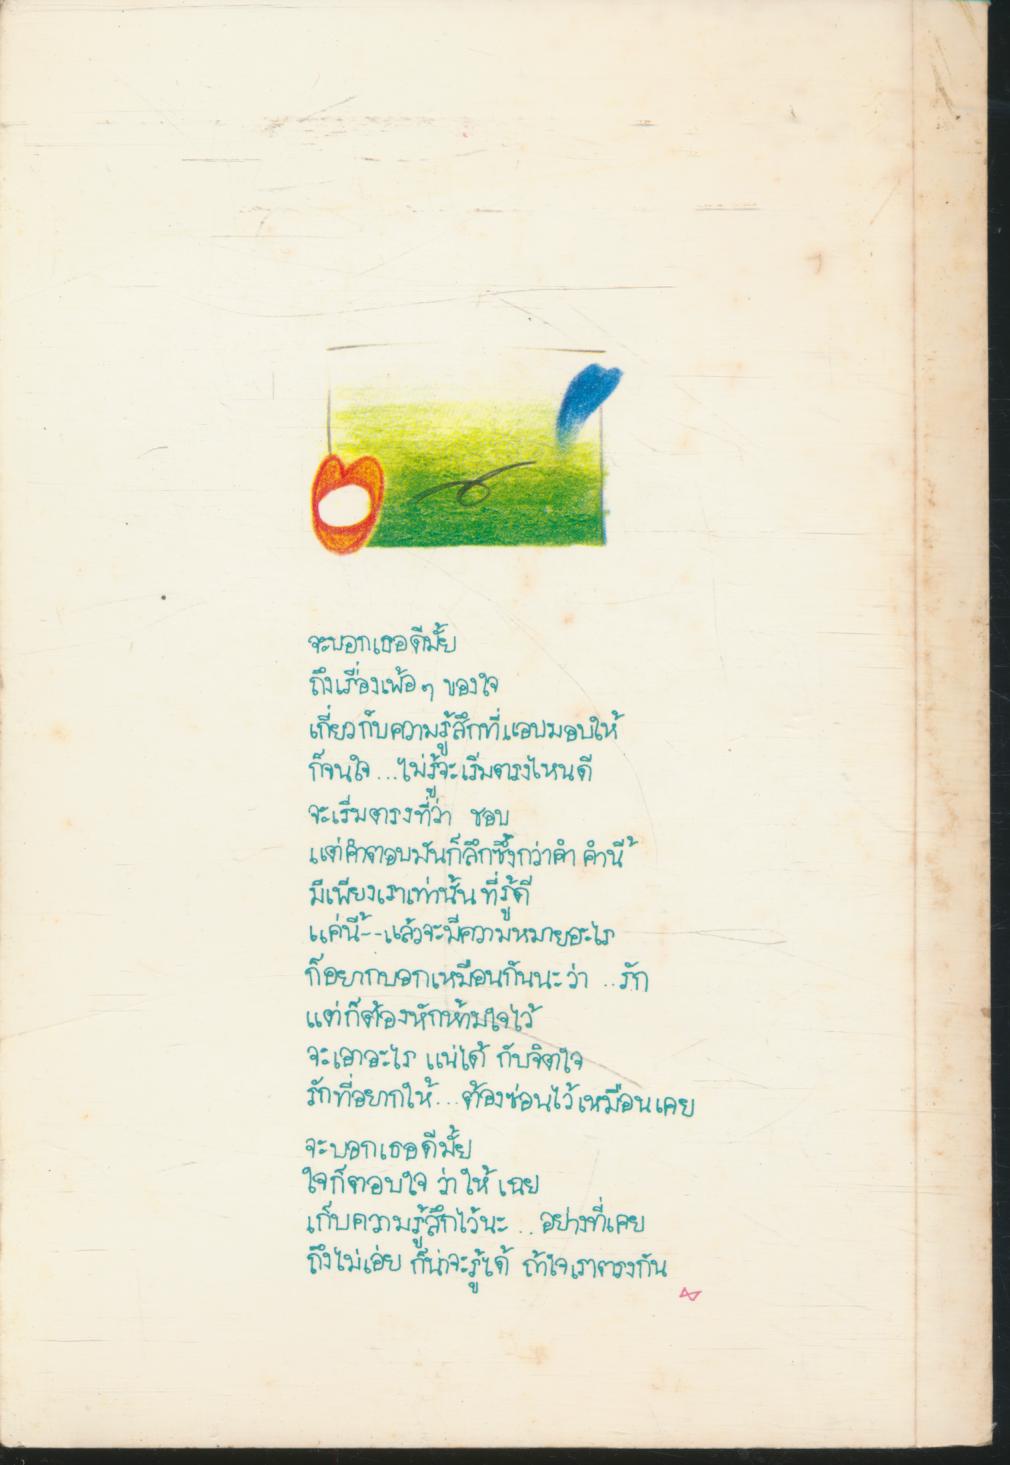 จะบอกเธอดีมั้ย
ถึงเรื่องเพ้อ ๆ ของใจ
เกี่ยวกับความรู้สึกที่แอบมอบให้
ก็จนใจ...ไม่รู้จะเริ่มตรงไหนดี
จะเริ่มตรงที่ว่า ชอบ
แต่คำตอบมันก็ลึกซึ้งกว่าคำ คำนี้
มีเพียงเราเท่านั้น ที่รู้ดี
แค่นี้--แล้วจะมีความหมายอะไร
ก็อยากบอกเหมือนกันนะว่า ..รัก
แต่ก็ต้องหักห้ามใจไว้
จะเอาอะไร แน่ได้ กับจิตใจ
รักที่อยากให้...ต้องซ่อนไว้เหมือนเคย
จะบอกเธอดีมั้ย
ใจก็ตอบใจ ว่าให้ เฉย
เก็บความรู้สึกไว้นะ...อย่างที่เคย
ถึงไม่เอ่ย ก็น่าจะรู้ได้ ถ้าใจเราตรงกัน